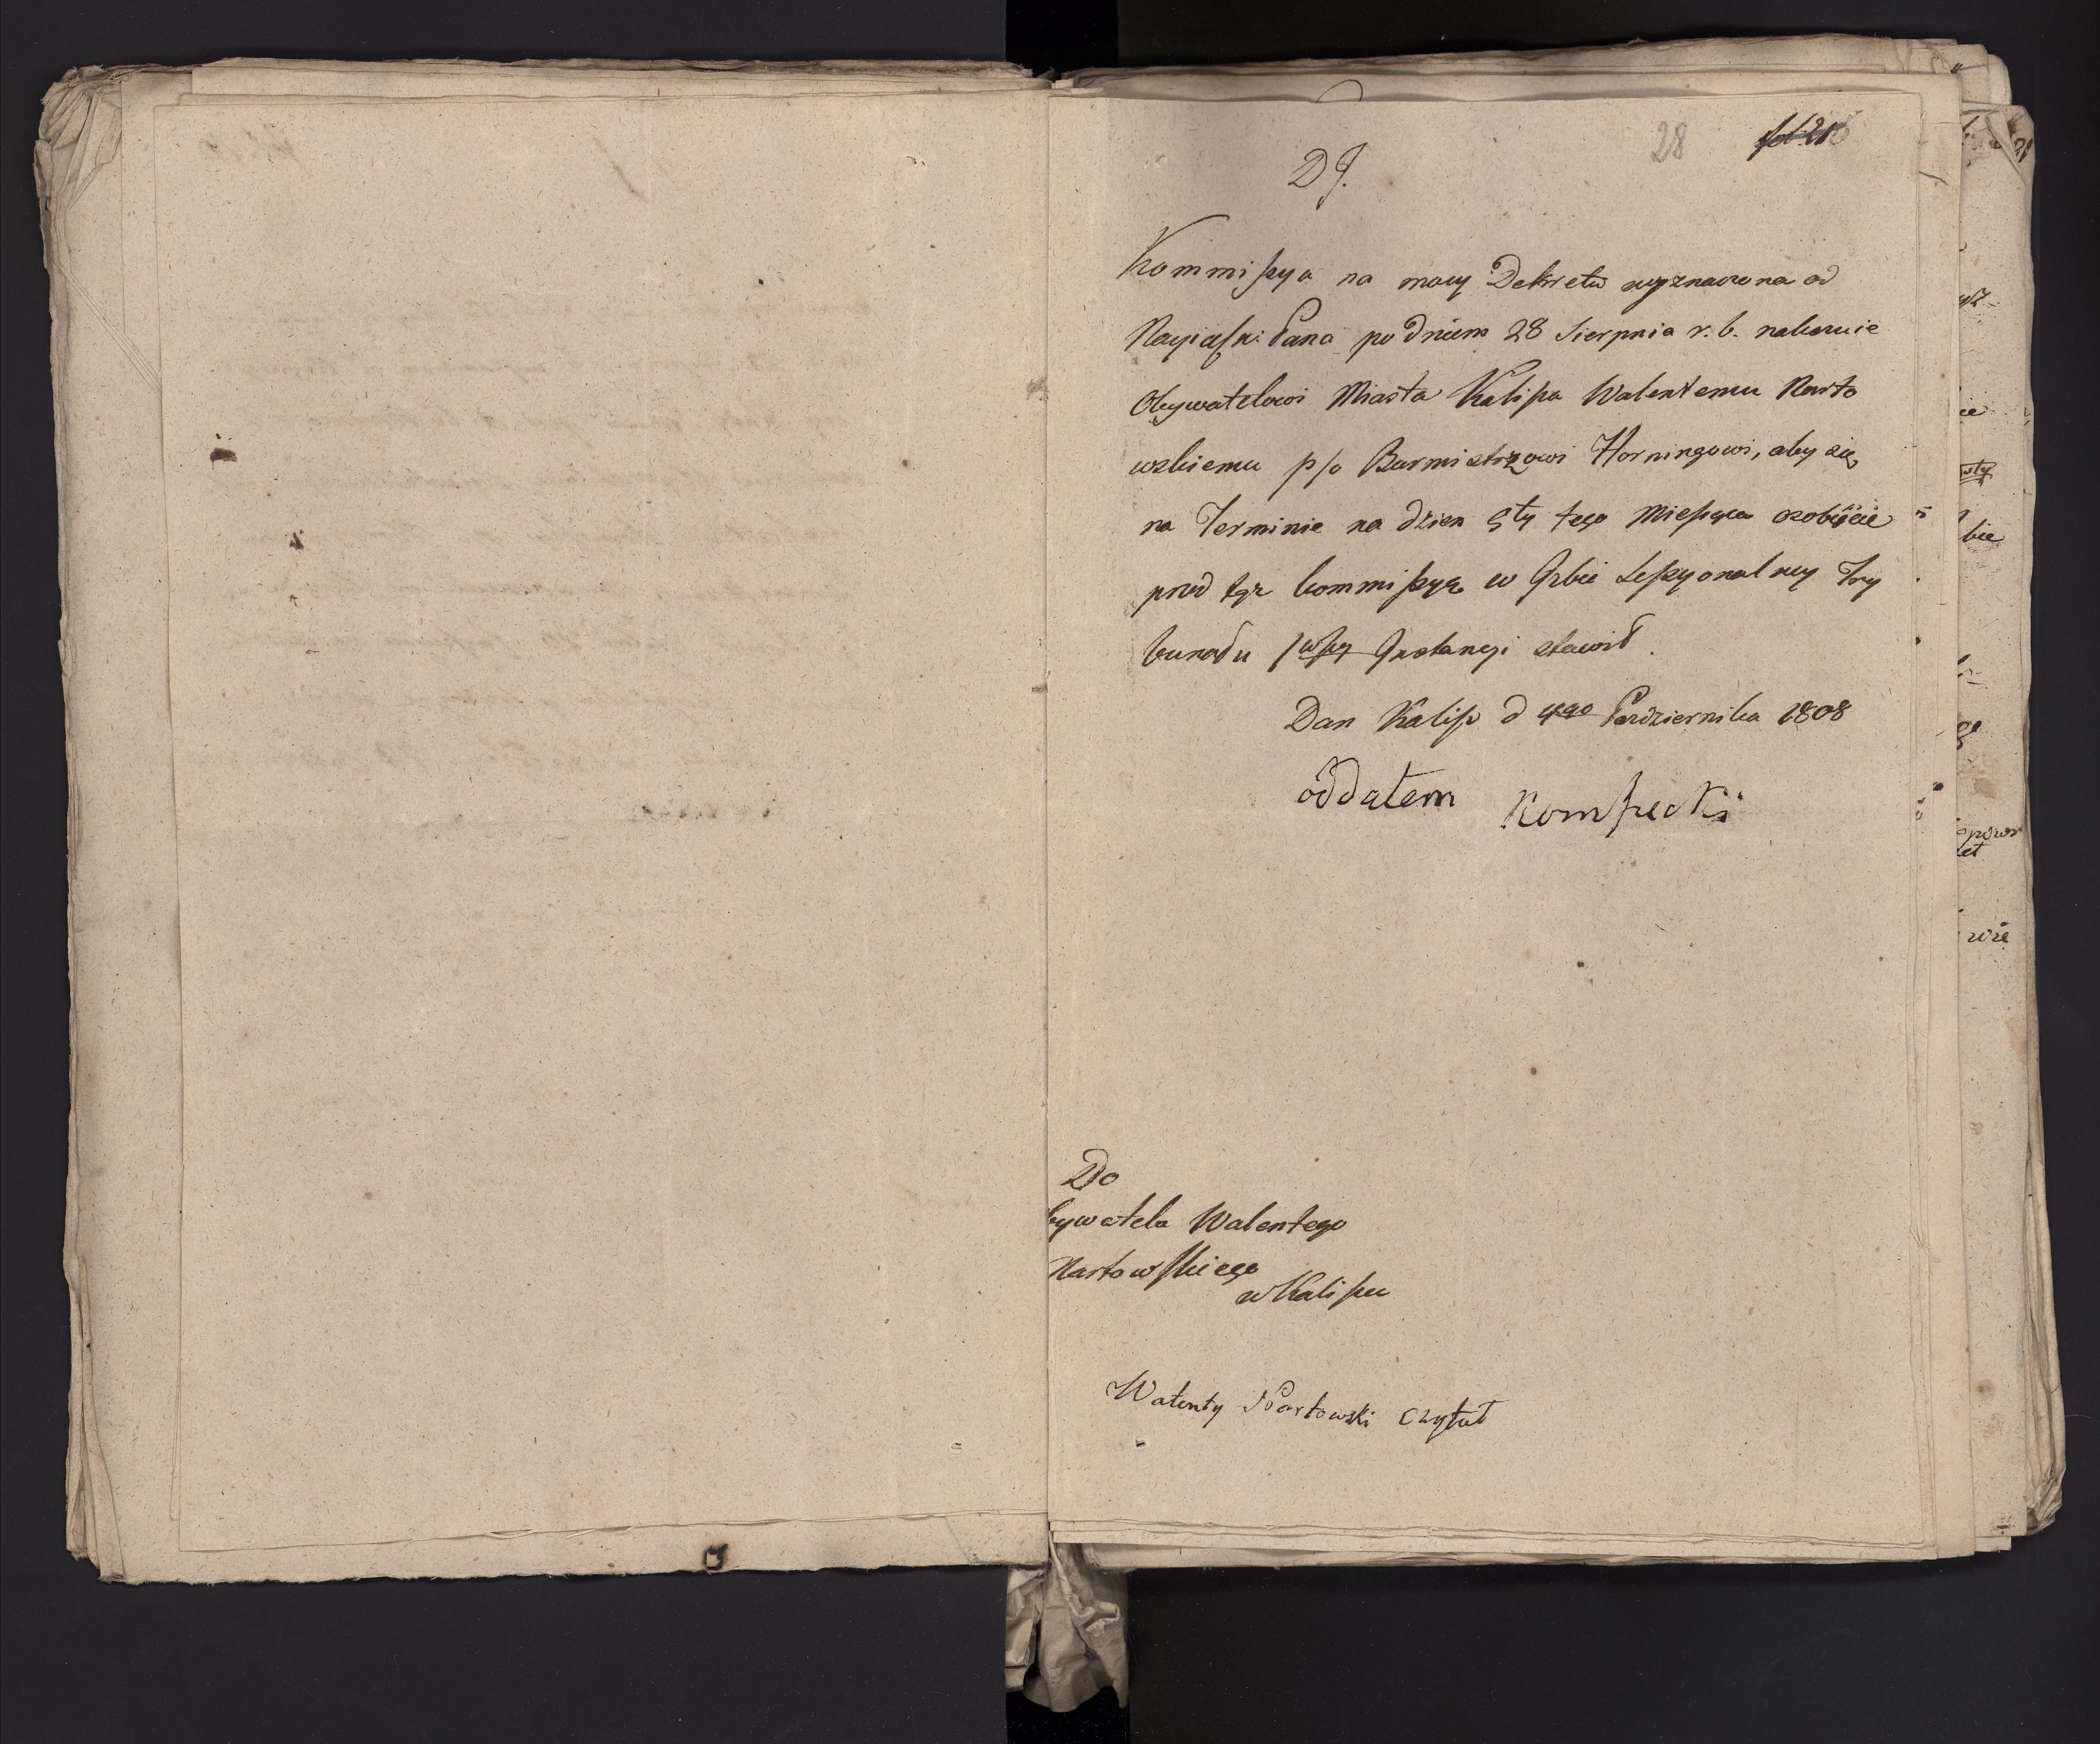 28
fol: 26
DJ.
Kommissya na mocy Dekretu wyznaczona od
Nayiasn: Pana pod dniem 28 Sierpnia r. b. nakazuie
Obywatelowi Miasta Kalisza Walentemu Narto
wskiemu p/o Burmistrzowi Horningowi, aby się
na Terminie na dzien 5ty tego Miesąca osobiście
przed tąz kommissyą w Izbie Sessyonalney Try
bunału 1wszy Instancyi stawił.
Dan Kalisz d 4go Pazdziernika 1808
oddałem Kompecki
Do
bywatela Walentego
Nartowskiego
w Kaliszu
Walenty Nartowski czytał